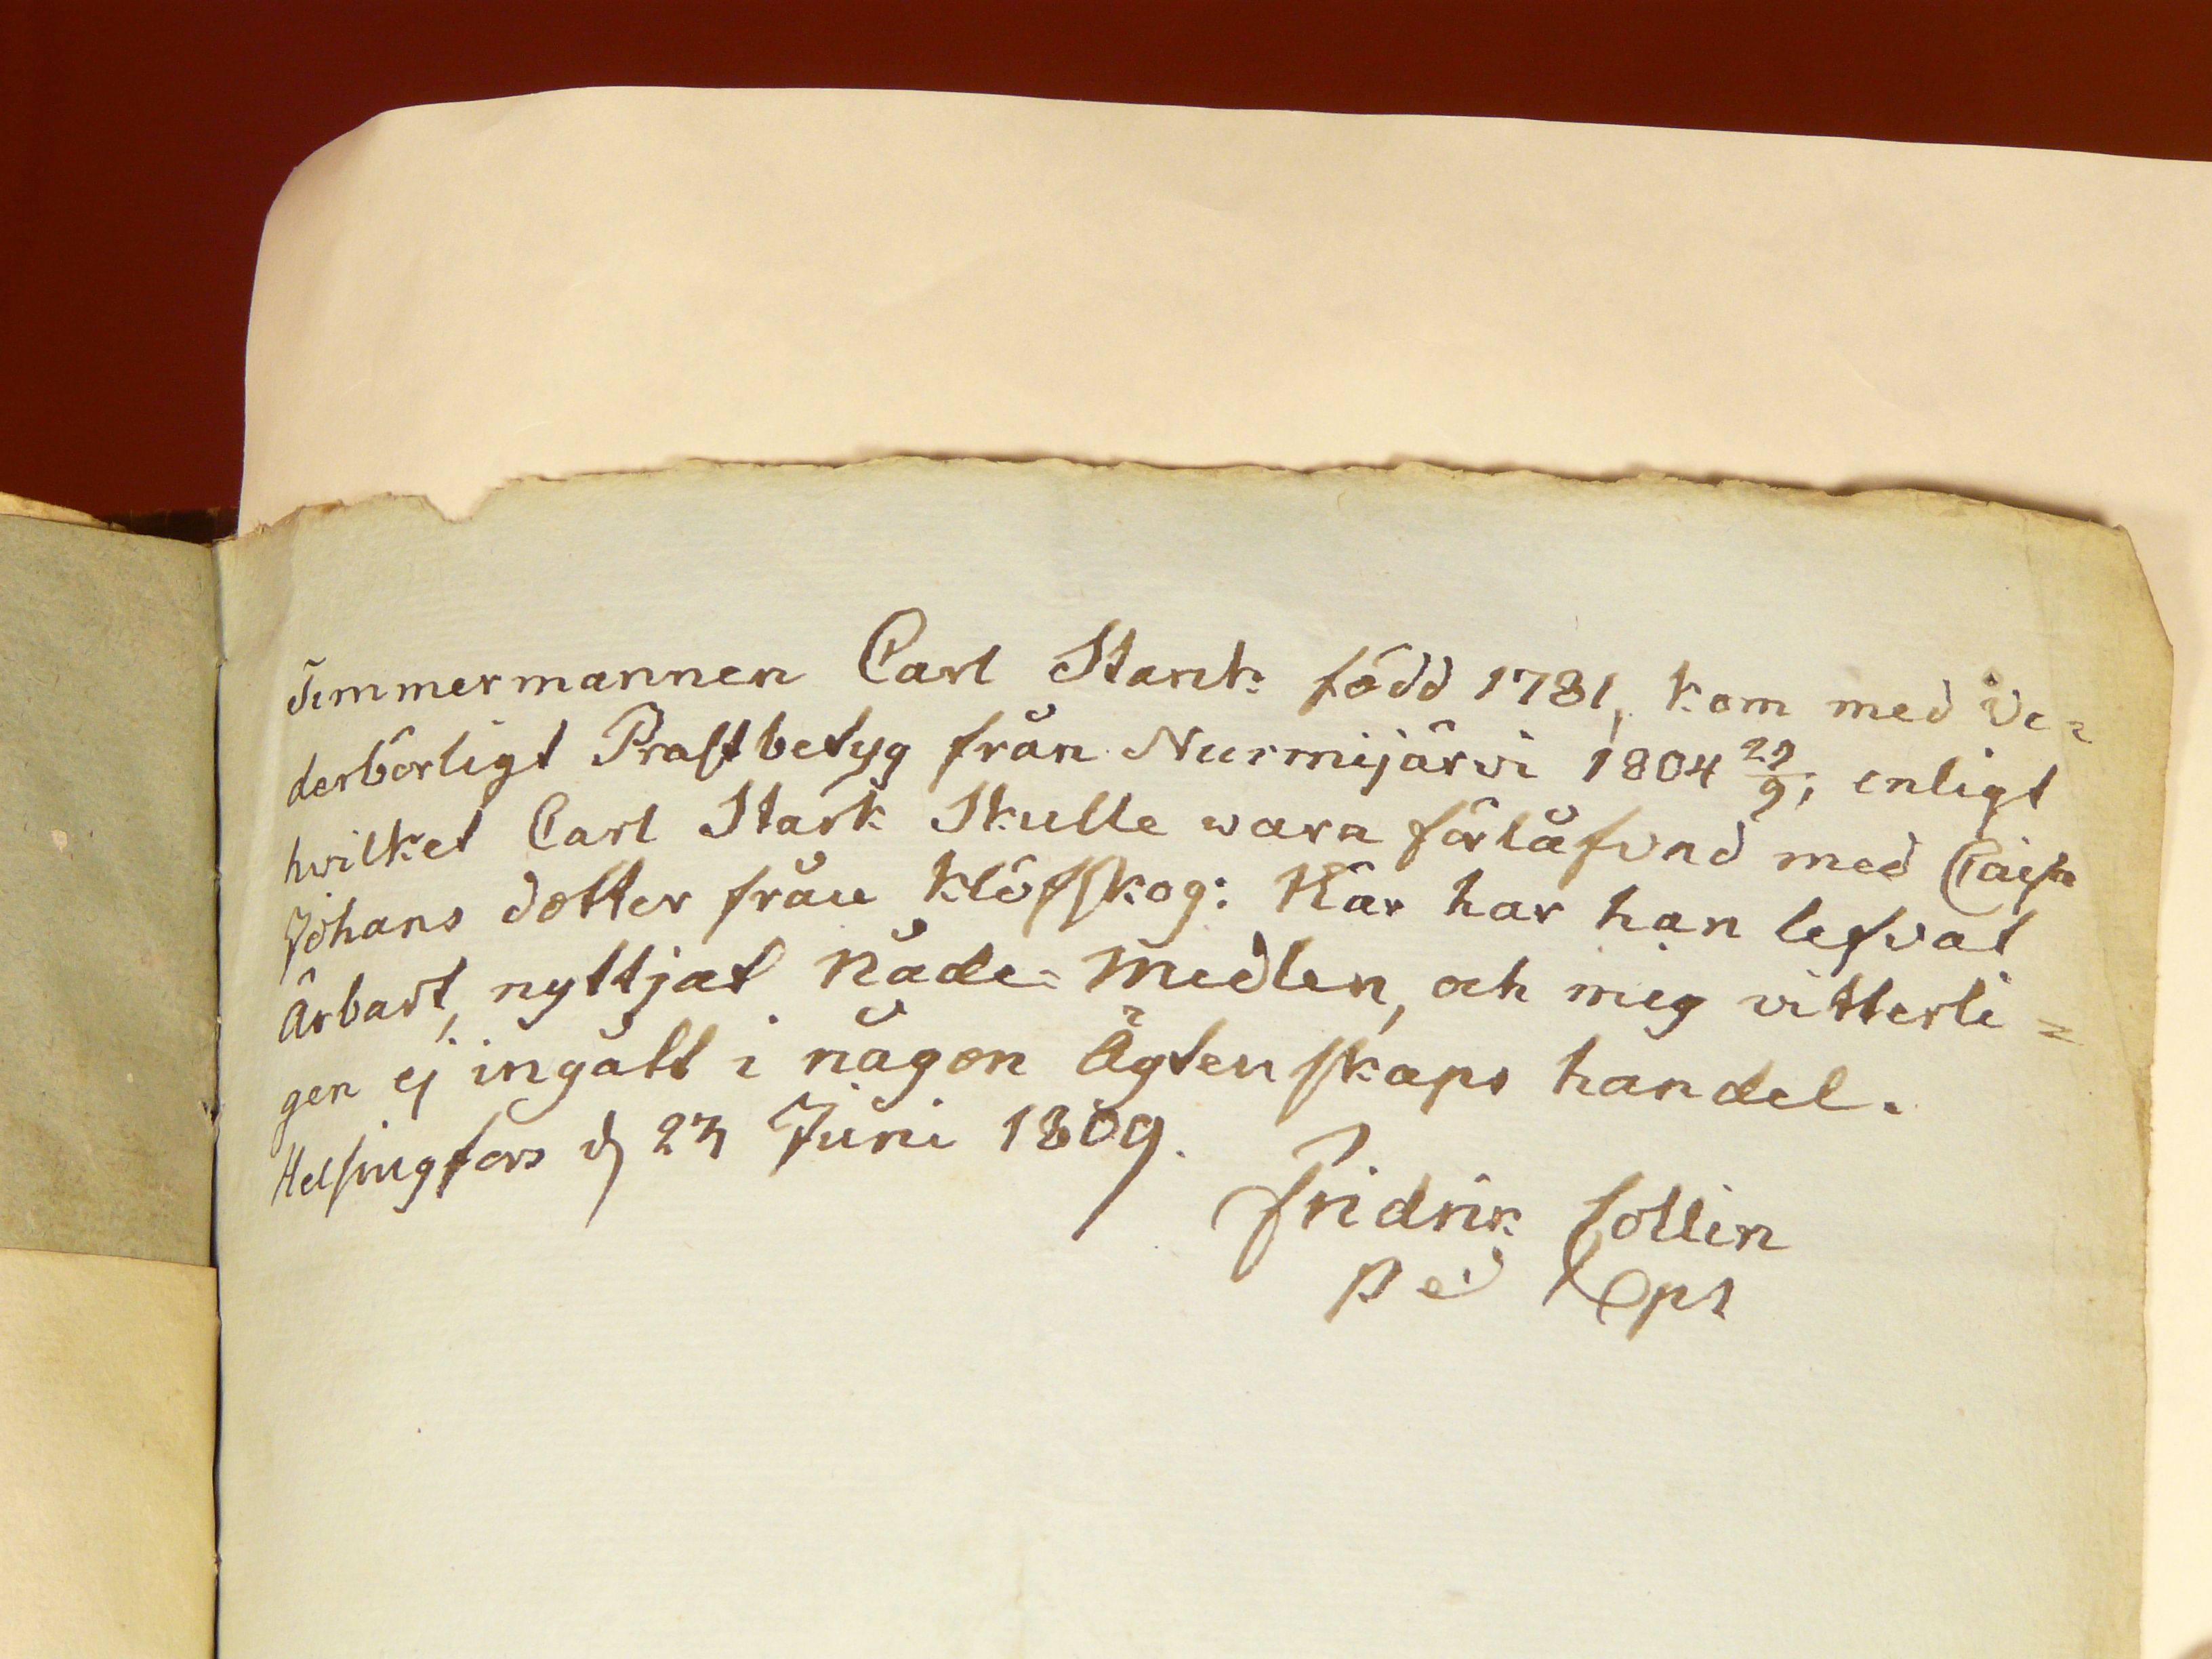 Timmermannen Carl Stark född 1781, kom med ve=
derbörligt Prastbetyg från Nurmijärvi 1804 29/9; enligt
hvilket Carl Stark Skulle wara förläfvad med Caisa
Johans dotter från Klöfskog: Här har han lefvat
Ärbart, nyttjat Nåde=Medlen, och mig vitterli=
gen ej ingått i någon Ägtenskaps handel.
Helsingfors d 23 Juni 1809.
Fridrik Collin